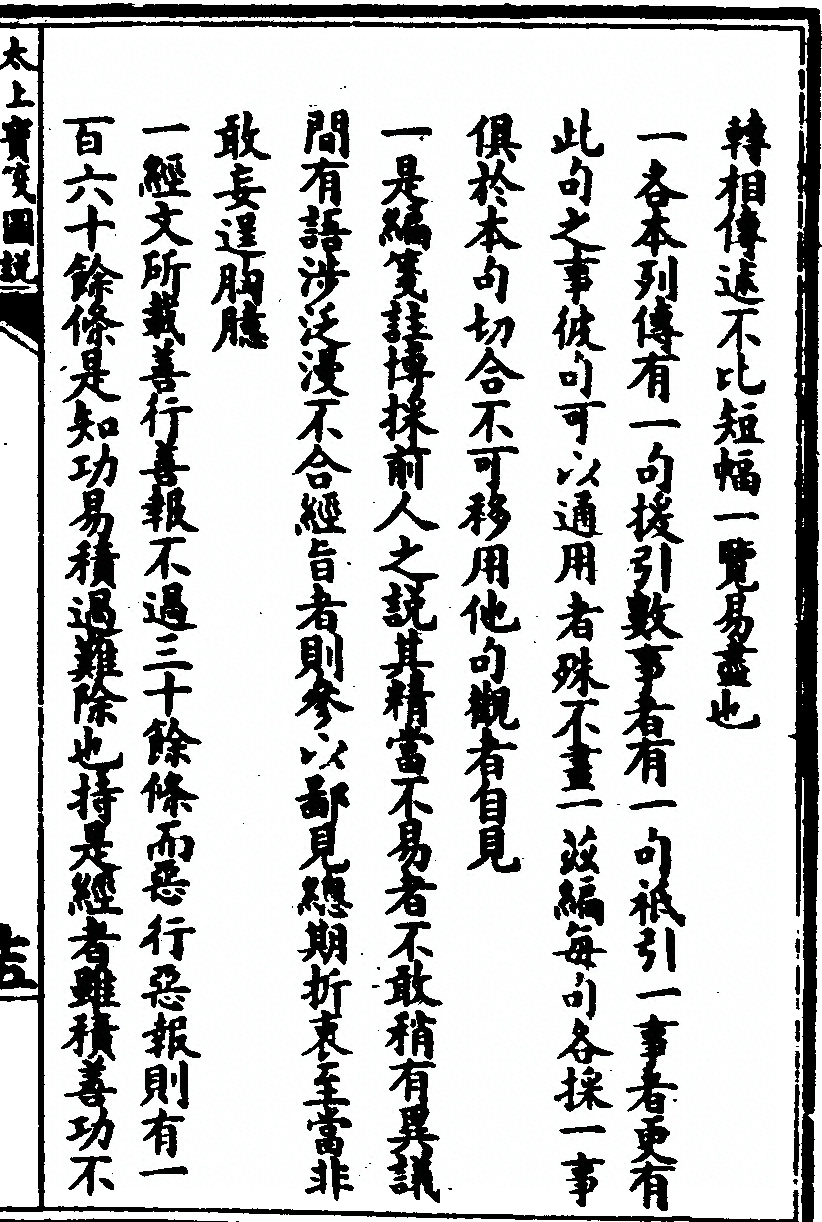 轉相傳述不比短幅一覽易盡也
一各本列傳有一句援引數事者有一句祗引一事者更有
此句之事彼句可以通用者殊不畫一茲編每句各採一事
俱於本句切合不可移用他句觀者自見
一是編箋註博採前人之說其精當不易者不敢稍有異議
間有語涉泛漫不合經旨者則參以鄙見總期折衷至當非
敢妄逞胸臆
一經文所載善行善報不過三十餘條而惡行惡報則有一
百六十餘條是知功易積過難除也持是經者雖積善功不
太上寶箋圖說